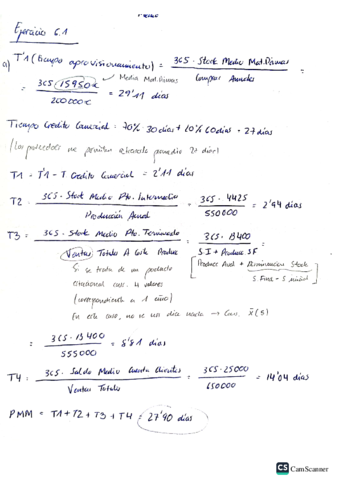 Ejercicio 6.1
a) T'1 (tiempo aprovisionamiento) = 365 · Stock Medio Mat.Primas / Compras Anuales =
= 365 · 15950€ / 200000€ = 29'11 días
Media Mat.Primas
Tiempo Crédito Comercial = 70% 30 días + 10% 60 días = 27 días
(Los proveedores me permiten retrasarlo promedio 27 días)
T1 = T'1 - T Crédito Comercial = 2'11 días
T2 = 365 · Stock Medio Pto. Intermedio / Producción Anual = 365 · 4425 / 550000 = 2'94 días
T3 = 365 · Stock Medio Pto. Terminado / Ventas Totales A Coste Produc = 365 · 13400 / SI + Produc - SF
Si se trata de un producto
estacional cons. 12 valores
(correspondiente a 1 año)
En este caso, no se nos dice nada → Cons. x̄(S)
[Produce Anual + Disminución Stock
S. Final - S inicial]
= 365 · 13400 / 555000 = 8'81 días
T4 = 365 · Saldo Medio Cuenta Clientes / Ventas Totales = 365 · 25000 / 650000 = 14'04 días
PMM = T1 + T2 + T3 + T4 = 27'90 días
CS CamScanner